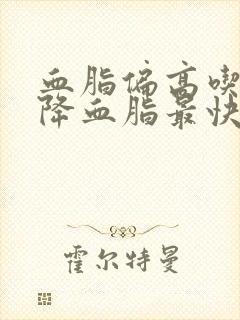 血脂偏高喫
降血脂最快
霍尔特曼